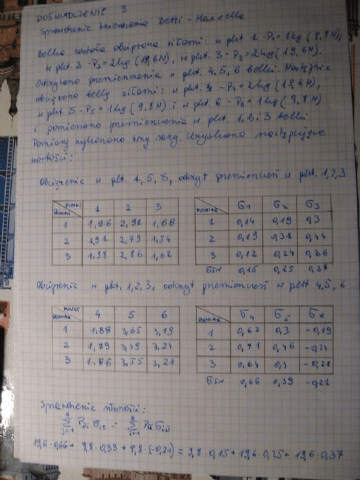 DOŚWIADCZENIE 3
Sprawdzenie twierdzenia Betti - Maxwella
Belka została obciążona siłami: w pkt 1 - P1 = 1kg (9,8N)
w pkt 2 - P2 = 2kg (19,6N), w pkt 3 - P3 = 2kg (19,6N).
Odczytano przemieszczenia w pkt. 4, 5, 6 belki. Następnie
obciążono belkę siłami: w pkt 4 - P4 = 2kg (19,6N)
w pkt 5 - P5 = 1kg (9,8N) i w pkt 6 - P6 = 1kg (9,8N)
i pomierzono przemieszczenia w pkt. 1, 2 i 3 belki.
Pomiary wykonano trzy razy. Uzyskano następujące
wartości:
Obciążenie w pkt 4, 5, 6, odczyt przemieszczeń w pkt 1, 2, 3
1 2 3
1 1,96 2,92 1,68
2 1,92 2,79 1,54
3 1,98 2,86 1,62
δ1 δ2 δ3
1 0,14 0,19 0,3
2 0,19 0,32 0,44
3 0,12 0,24 0,36
δśr 0,15 0,25 0,37
Obciążenie w pkt. 1, 2, 3, odczyt przemieszczeń w pkt 4, 5, 6
4 5 6
1 1,88 3,65 3,19
2 1,79 3,49 3,24
3 1,86 3,55 3,21
δ4 δ5 δ6
1 0,62 0,3 -0,19
2 0,71 0,46 -0,24
3 0,64 0,4 -0,21
δśr 0,66 0,39 -0,21
Sprawdzenie równości:
19,6 · 0,66 + 9,8 · 0,39 + 9,8 · (-0,21) = 9,8 · 0,15 + 19,6 · 0,25 + 19,6 · 0,37